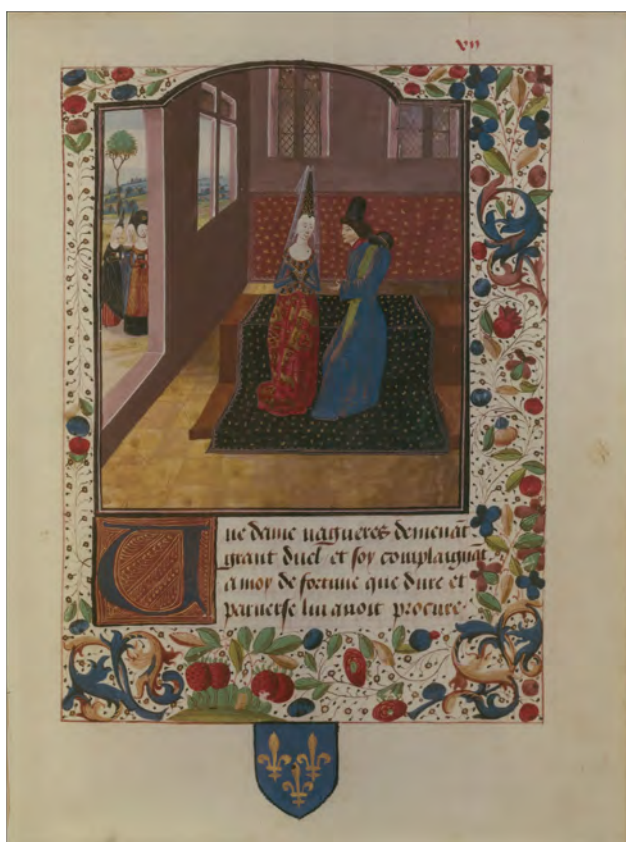 vii
Une dame nagueres demenāt
grant duel et soy complaignāt
a moy de fortune que dure et
paruerse lui auoit procure